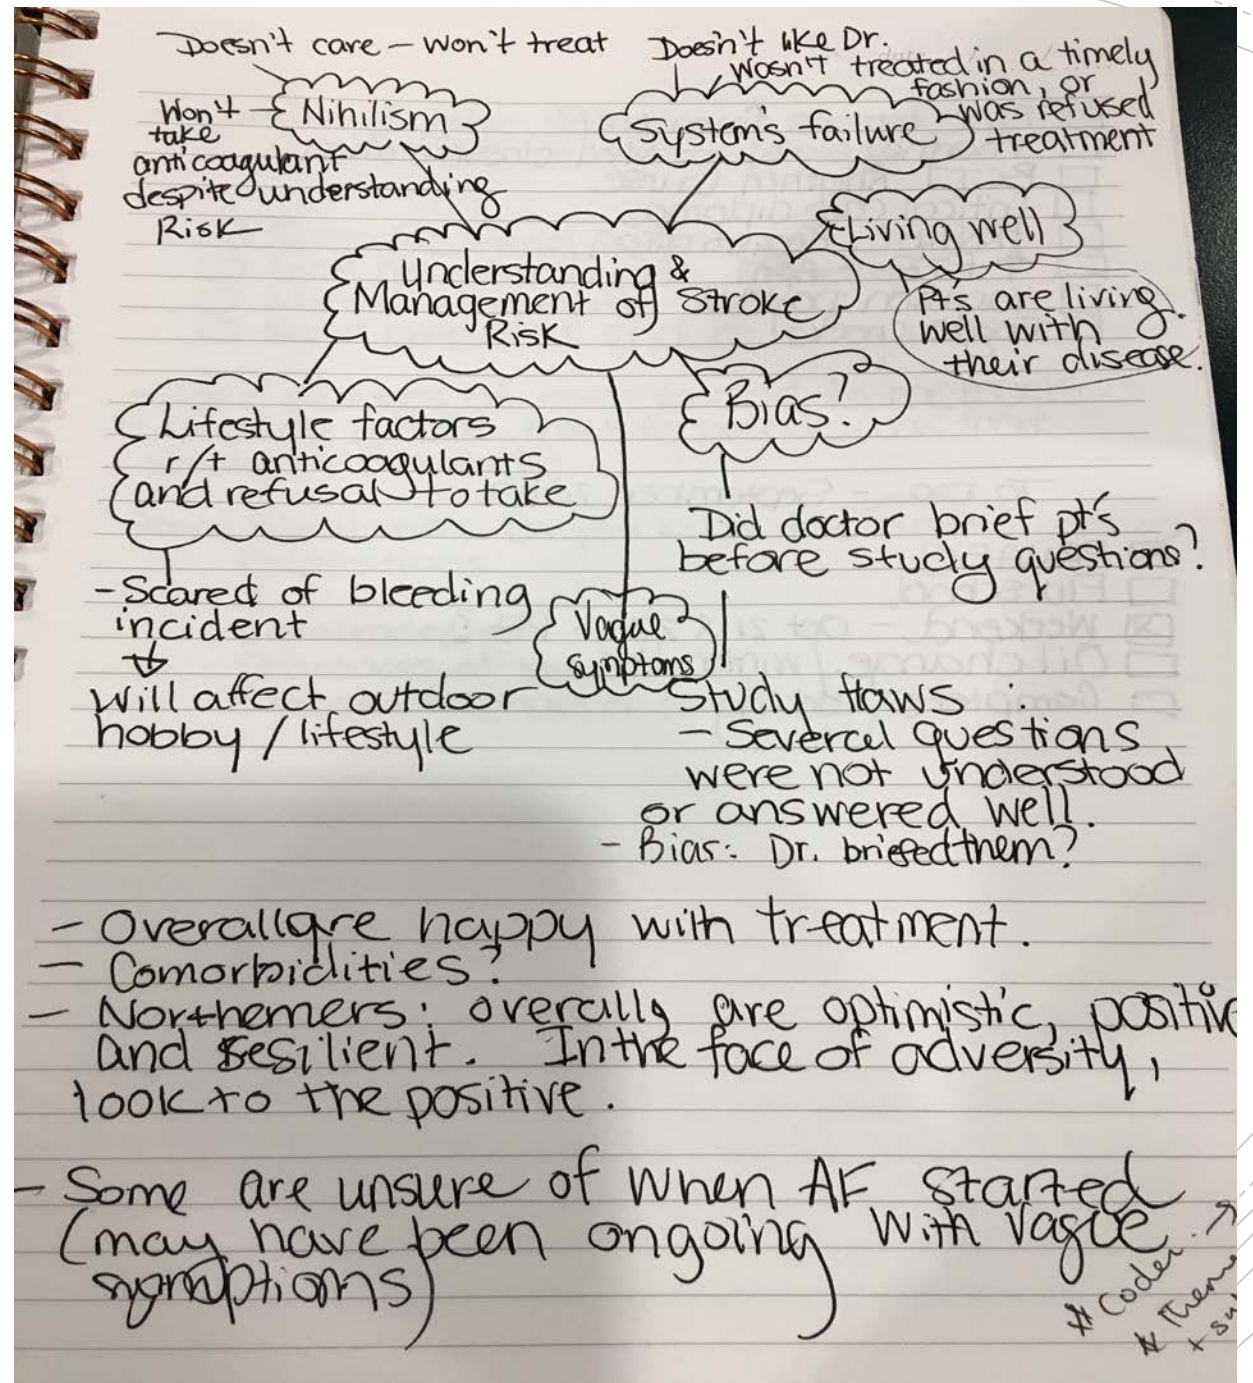 Doesn't care – won't treat
Won't
take
anticoagulant
despite understanding
Risk
Nihilism
Doesn't like Dr.
Wasn't treated in a timely
fashion, or
was refused
treatment
System's failure
Living well
Pt's are living
well with
their disease.
Understanding &
Management of Stroke
Risk
Lifestyle factors
r/t anticoagulants
and refusal to take
- Scared of bleeding
incident
Will affect outdoor
hobby / lifestyle
Bias?
Did doctor brief pt's
before study questions?
Vague
symptoms
Study flaws :
- Several questions
were not understood
or answered well.
- Bias: Dr. briefed them?
- Overall are happy with treatment.
- Comorbidities?
- Northerners: overally are optimistic, positive
and resilient. In the face of adversity,
look to the positive.
- Some are unsure of when AF started
(may have been ongoing with vague
symptoms)
* Coder
* Them